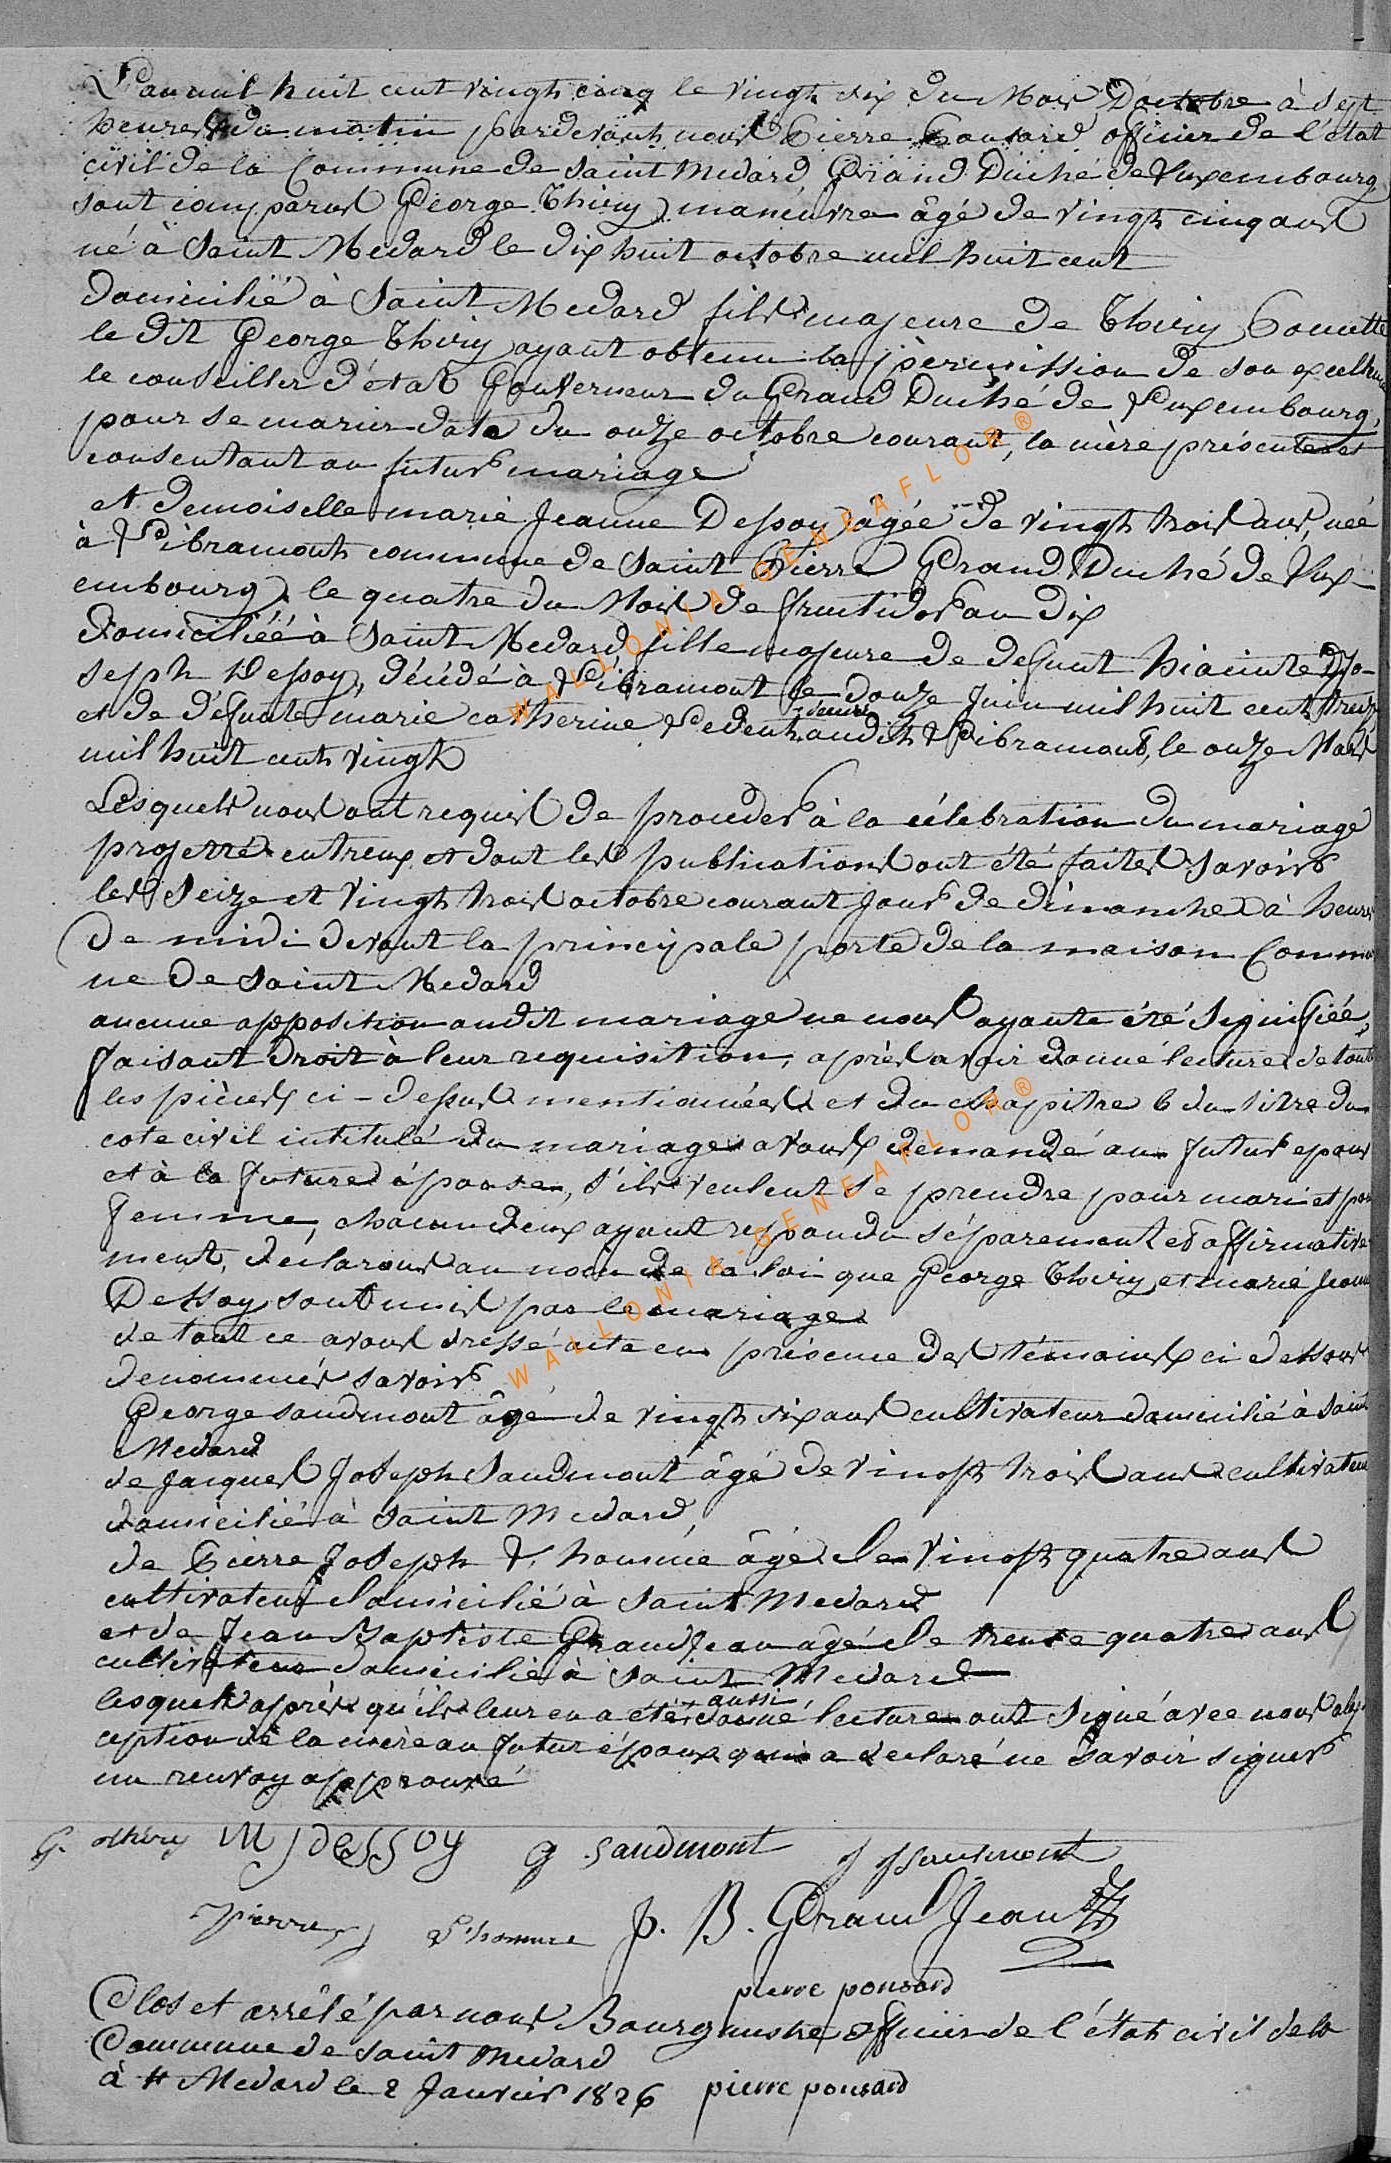 L'an mil huit cent vingt cinq le vingt six du Mois D'octobre à sept
heures du matin pardevant nous Pierre Ponsard officier de l'état
civil de la Commune de Saint Médard Grand Duché de Luxembourg
sont comparus George Thiry manœuvre âgé de vingt cinq ans
né à Saint Medard le dix huit octobre mil huit cent
domicilié à Saint Medard fils majeure de Thiry
le dit George Thiry ayant obtenu la permission de son excellence
le conseiller d'état Gouverneur du Grand Duché de Luxembourg,
pour se marier date du onze octobre courant, la mère présente et
consentant au futur mariage
et demoiselle marie Jeanne Dessoy âgée de vingt trois ans, née
à Libramont commune de Saint Pierre Grand Duché de Lux-
embourg, le quatre du Mois de fructidor an dix
Domiciliéé à Saint Medard fille majeure de defunt hiacinte Jo-
seph Dessoy, décédé à Libramont le douze Juin mil huit cent treize
et de défunte marie catherine décédée audit Libramont, le onze Mars
mil huit cent vingt
Lesquels nous ont requis de proceder à la célebration du mariage
projetté entreux et dont les publications ont été faites savoir
les Seize et vingt trois octobre courant jour de dimanche à heures
de midi devant la principale porte de la maison Commu
ne de Saint Medard
aucune opposition audit mariage ne nous ayante été signifiée,
faisant droit à leur requisition, après avoir donné lecture de toutes
les pièces ci-dessus mentionnées et du chapitre 6 du titre du
code civil intitulé du mariage avons demandé au futur epoux
et à la future épouse, s'ils veulent se prendre pour mari et pour
femme, chacun deux ayant repondu séparement et affirmative
ment, declarons au nom de la loi que George Thiry et marie Jeanne
Dessoy sont unis par le mariage
de tout ce avons dressé acte en présence des témoins ci dessous
denommés savoir
George Saudmont âgé de vingt six ans cultivateur domicilié à Saint
Medard
de Jacques Joseph Saudmont âgé de vingt trois ans cultivateur
domicilié à Saint Medard,
de Pierre Joseph L'homme âgé de vingt quatre ans
cultivateur domicilié à Saint Medard
et de Jean Baptiste GrandJean âgé de trente quatre ans
cultivateur domicilié à Saint Medard
lesquels après qu'ils leur en a été aussi donné lecture ont signé avec nous al'ex-
ception de la mère au futur époux qui a declaré ne savoir signer
un renvoy approuvé
G. thiry MJ dessoy g saudmont J J Saudmont
pierre J L'homme J. B. GrandJean
pierre ponsard
Clos et arrêté par nous Bourgmestre officier de l'état civil de la
Commune de Saint Medard
à St Medard le 2 Janvier 1826 pierre ponsard
WALLONIA-GENEAFLOR®
WALLONIA-GENEAFLOR®